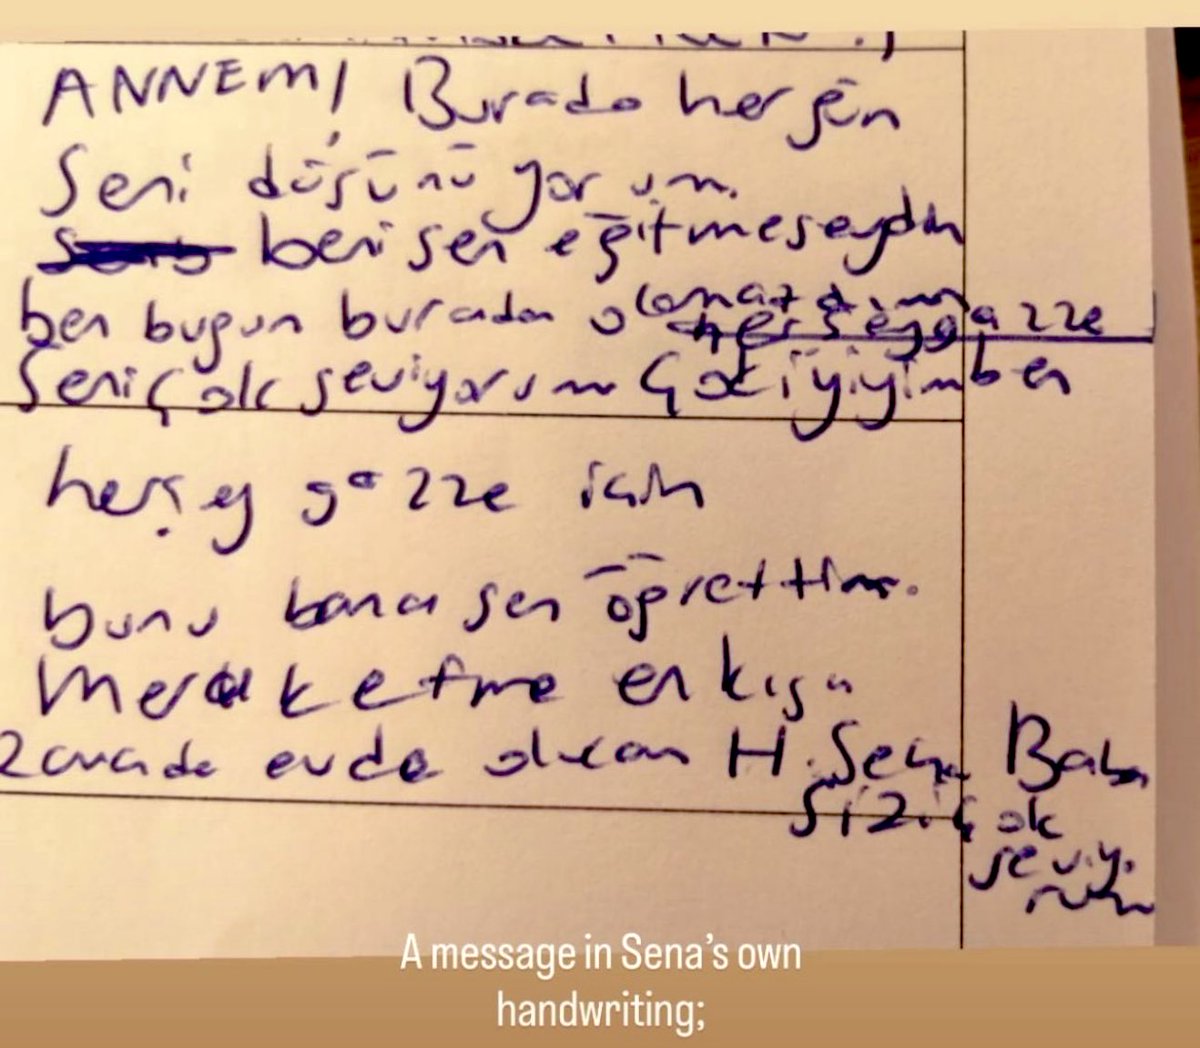 ANNEM! Burada hergün
Seni düşünüyorum.
beni sen eğitmeseydin
ben bugün buradan olamazdım
herşey gazze
Seni çok seviyorum Çok iyiyim ben
herşey gazze için
bunu bana sen öğrettin.
Merak etme en kısa
zamanda evde olcam H. Baba
Sizi çok
seviyorum
A message in Sena's own
handwriting;